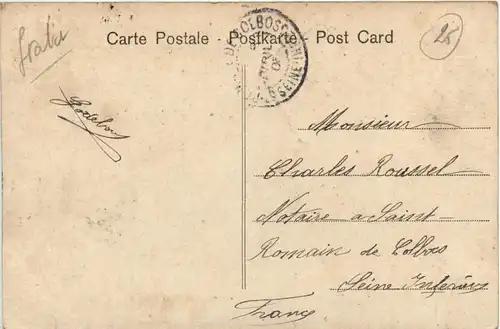 gratis
25
Carte Postale - Postkarte - Post Card
DE COLBOSC
AVRIL
05
SEINE
Monsieur
Charles Roussel
Notaire a Saint-
Romain de Colbosc
Seine Inférieure
France